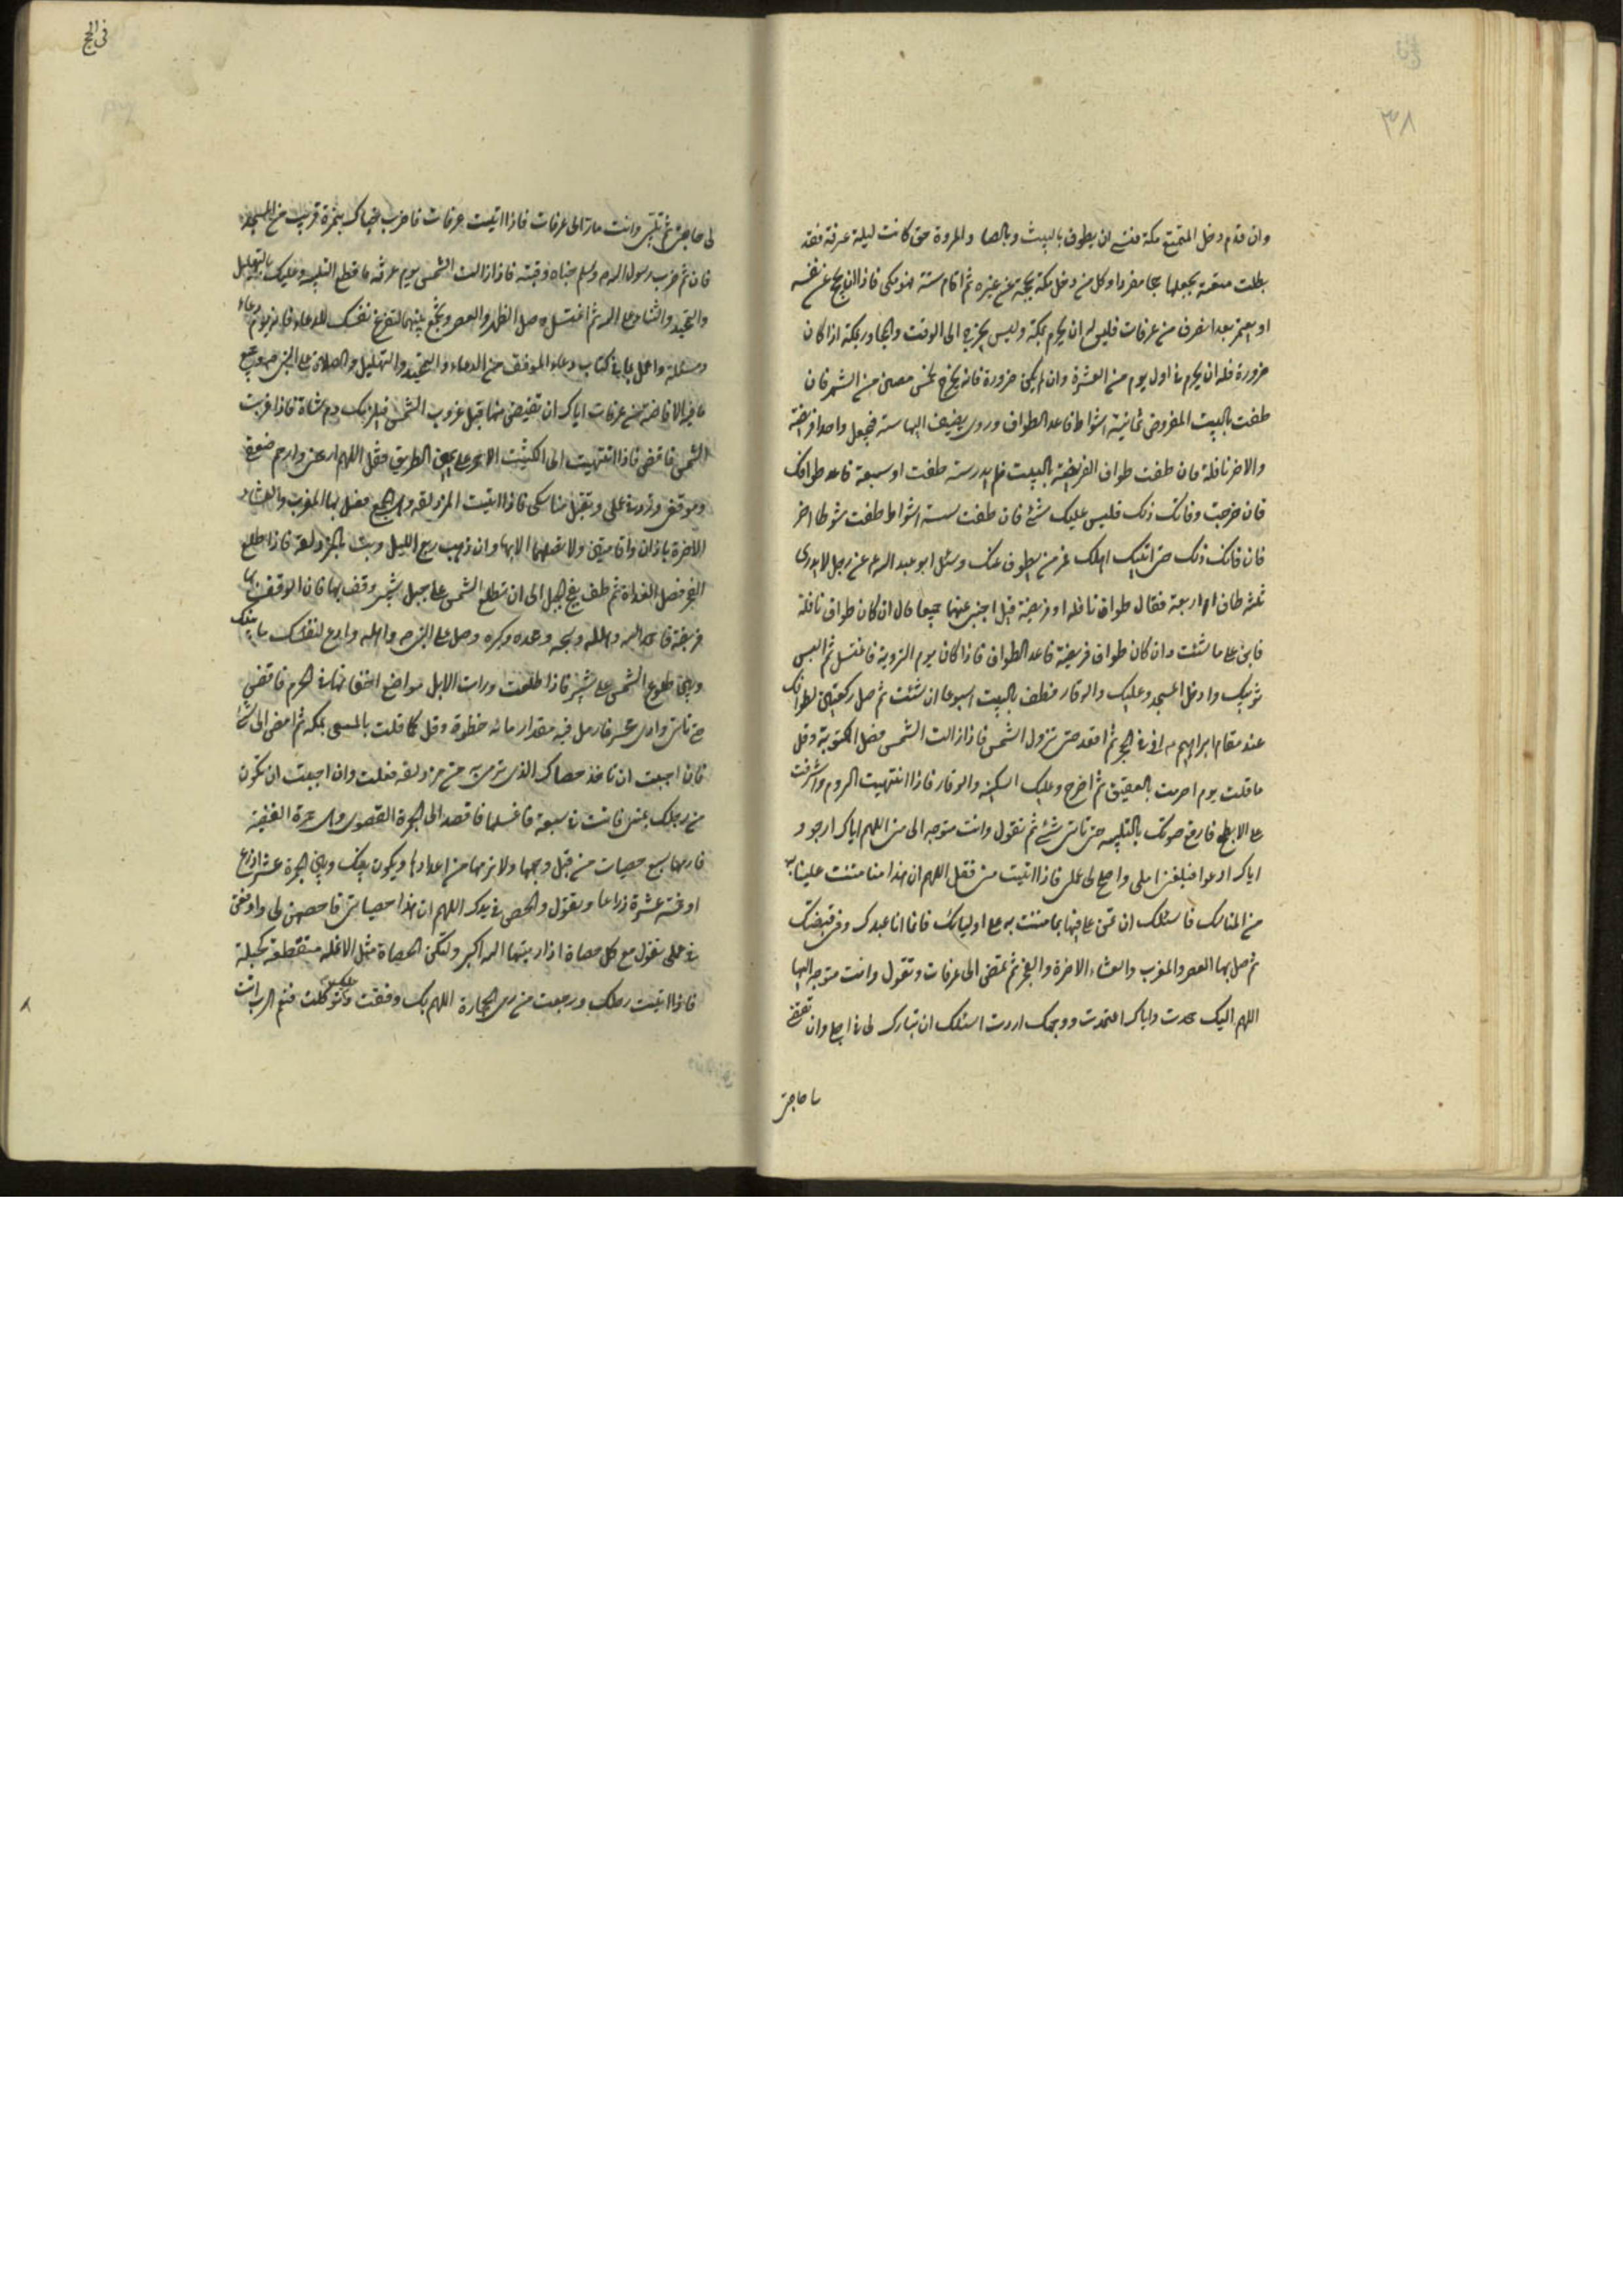 ٣٨
وان قدم دخل المتمتع مكة فنسى ان يطوف بالبيت وبالصفا والمروة حتى كانت ليلة عرفة فقد
بطلت متعته يجعلها حجا مفردا وكل من دخل مكة بحجة عن غيره ثم اقام سنة فهو مكى فاذا اراد ان يحج عن نفسه
او يعتمر بعد انصرف من عرفات فليس له ان يحرم بمكة وليس يجزيه الى الوقت والمجاور بمكة اذا كان
صرورة فله ان يحرم فى اول يوم من العشرة وان لم يكن صرورة فانه يخرج لخمس مضين من الشهر فان
طفت بالبيت المفروض ثمانية اشواط فاعد الطواف وروى يضيف اليها ستة فيجعل واحدا فريضة
والاخر نافلة فان طفت طواف الفريضة بالبيت فلم تدر ستة طفت او سبعة فاعد طوافك
فان خرجت وفاتك ذلك فليس عليك شئ فان طفت ستة اشواط طفت شوطا اخر
فان فاتك ذلك حتى اتيت اهلك فمر من يطوف عنك وسئل ابو عبد الله ع عن رجل لا يدرى
ثلثة طاف ام اربعة فقال طواف نافلة او فريضة قيل اجبنى عنهما جميعا قال ان كان طواف نافلة
فابن على ما شئت وان كان طواف فريضة فاعد الطواف فاذا كان يوم التروية فاغتسل ثم البس
ثوبيك وادخل المسجد وعليك والوقار فطف بالبيت اسبوعا ان شئت ثم صل ركعتين لطوافك
عند مقام ابراهيم ع او فى الحجر ثم اقعد حتى تزول الشمس فاذا زالت الشمس فصل المكتوبة وقل
ما قلت يوم احرمت بالعقيق ثم اخرج وعليك السكينة والوقار فاذا انتهيت الروم واشرفت
على الابطح فارفع صوتك بالتلبية حتى تاتى شئ ثم تقول وانت متوجه الى منى اللهم اياك ارجو و
اياك ادعوا فبلغنى املى واصلح لى عملى فاذا اتيت منى فقل اللهم ان هذا منا مننت علينا به
من المناسك فاسئلك ان تمن على فيها بما مننت به على اوليائك فانما انا عبدك وفى قبضتك
ثم صل بها العصر والمغرب والعشاء الاخرة والفجر ثم تمضى الى عرفات وتقول وانت متوجه اليها
اللهم اليك عمدت واياك اعتمدت ووجهك اردت اسئلك ان تبارك لى فى اجلى وان تقضى
حاجتى
فى الحج
لى حاجتى ثم تلبى وانت مار الى عرفات فاذا اتيت عرفات فاضرب خباك بنمرة قريب من المسجد
فان ثم ضرب رسول الله ص وسلم خباه وقبته فاذا زالت الشمس يوم عرفة فاقطع التلبية وعليك بالتهليل
والتحميد والثناء على الله ثم اغتسل وصل الظهر والعصر وتجمع بينهما لتفرغ نفسك للدعاء فانه يوم دعاء
ومسئلة واعمل بما فى كتاب دعاء الموقف من الدعاء والتحميد والتهليل والصلاة على النبى
الافاضة من عرفات اياك ان تفيض منها قبل غروب الشمس فيلزمك دم شاة فاذا غربت
الشمس فافض فاذا انتهيت الى الكثيب الاحمر على يمين الطريق فقل اللهم ارحم
موقفى وزد فى عملى وتقبل مناسكى فاذا اتيت المزدلفة وهى الجمع فصل بها المغرب والعشاء
الاخرة باذان واقامتين ولا تصلهما الا بها وان ذهب ربع الليل وبت بالمزدلفة فاذا طلع
الفجر فصل الغداة ثم طف الجبل الى ان تطلع الشمس على جبل ثبير وقف بها فان الوقوف بها
فريضة فاحمد الله وهلله وسبحه ومجده وكبره وصل على النبى ص واهله وادع لنفسك ما بينك
وبين طلوع الشمس على ثبير فاذا طلعت ورات الابل مواضع اخفافها فى الحرم فافض
حتى تاتى وادى محسر فارمل فيه مقدار مائة خطوة وقل كما قلت بالمسعى بمكة ثم امض الى منى
فان احببت ان تاخذ حصاك الذى ترمى به من مزدلفة فعلت وان احببت ان تكون
من رحلك بمنى فانت فى سعة فاغسلها فاقصد الى الجمرة القصوى وهى جمرة العقبة
فارمها بسبع حصيات من قبل وجهها ولا ترمها من اعلاها ويكون بينك وبين الجمرة عشر اذرع
او خمسة عشرة ذراعا وتقول والحصى فى يدك اللهم ان هذا حصياتى فاحصهن لى وارفعهن
فى عملى تقول مع كل حصاة اذا رميتها الله اكبر ولتكن الحصاة مثل الانملة منقطعة كحيلة
فاذا اتيت رحلك ورجعت من رمى الجمارة اللهم بك وثقت وعليك توكلت فنعم الرب انت